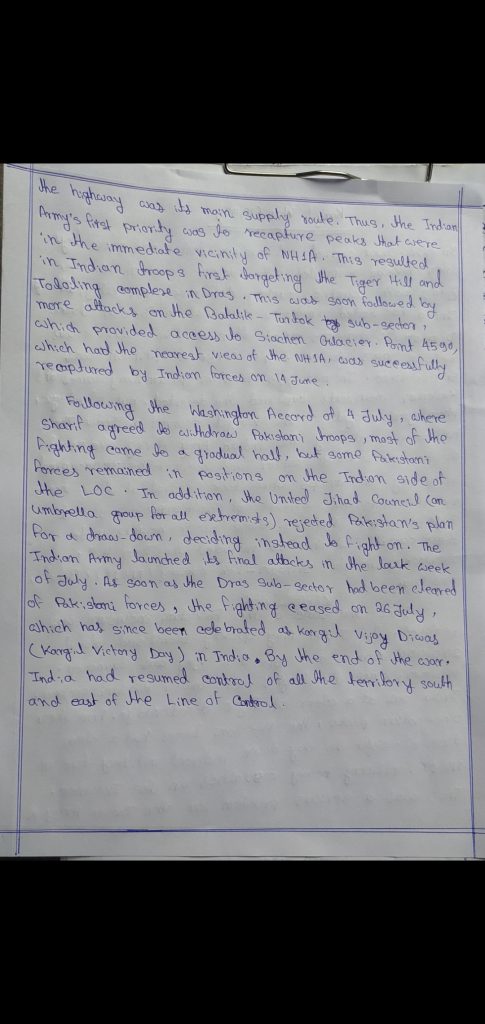 the highway was its main supply route. Thus, the Indian
Army's first priority was to recapture peaks that were
in the immediate vicinity of NH1A. This resulted
in Indian troops first targeting the Tiger Hill and
Tololing complex in Dras. This was soon followed by
more attacks on the Batalik - Turtok sub-sector,
which provided access to Siachen Glacier. Point 4590,
which had the nearest view of the NH1A, was successfully
recaptured by Indian forces on 14 June.
Following the Washington Accord of 4 July, where
Sharif agreed to withdraw Pakistani troops, most of the
fighting came to a gradual halt, but some Pakistani
forces remained in positions on the Indian side of
the LOC. In addition, the United Jihad Council (an
umbrella group for all extremists) rejected Pakistan's plan
for a draw-down, deciding instead to fight on. The
Indian Army launched its final attacks in the last week
of July. As soon as the Dras Sub-sector had been cleared
of Pakistani forces, the fighting ceased on 26 July,
which has since been celebrated as Kargil Vijay Diwas
(Kargil Victory Day) in India. By the end of the war.
India had resumed control of all the territory south
and east of the Line of Control.